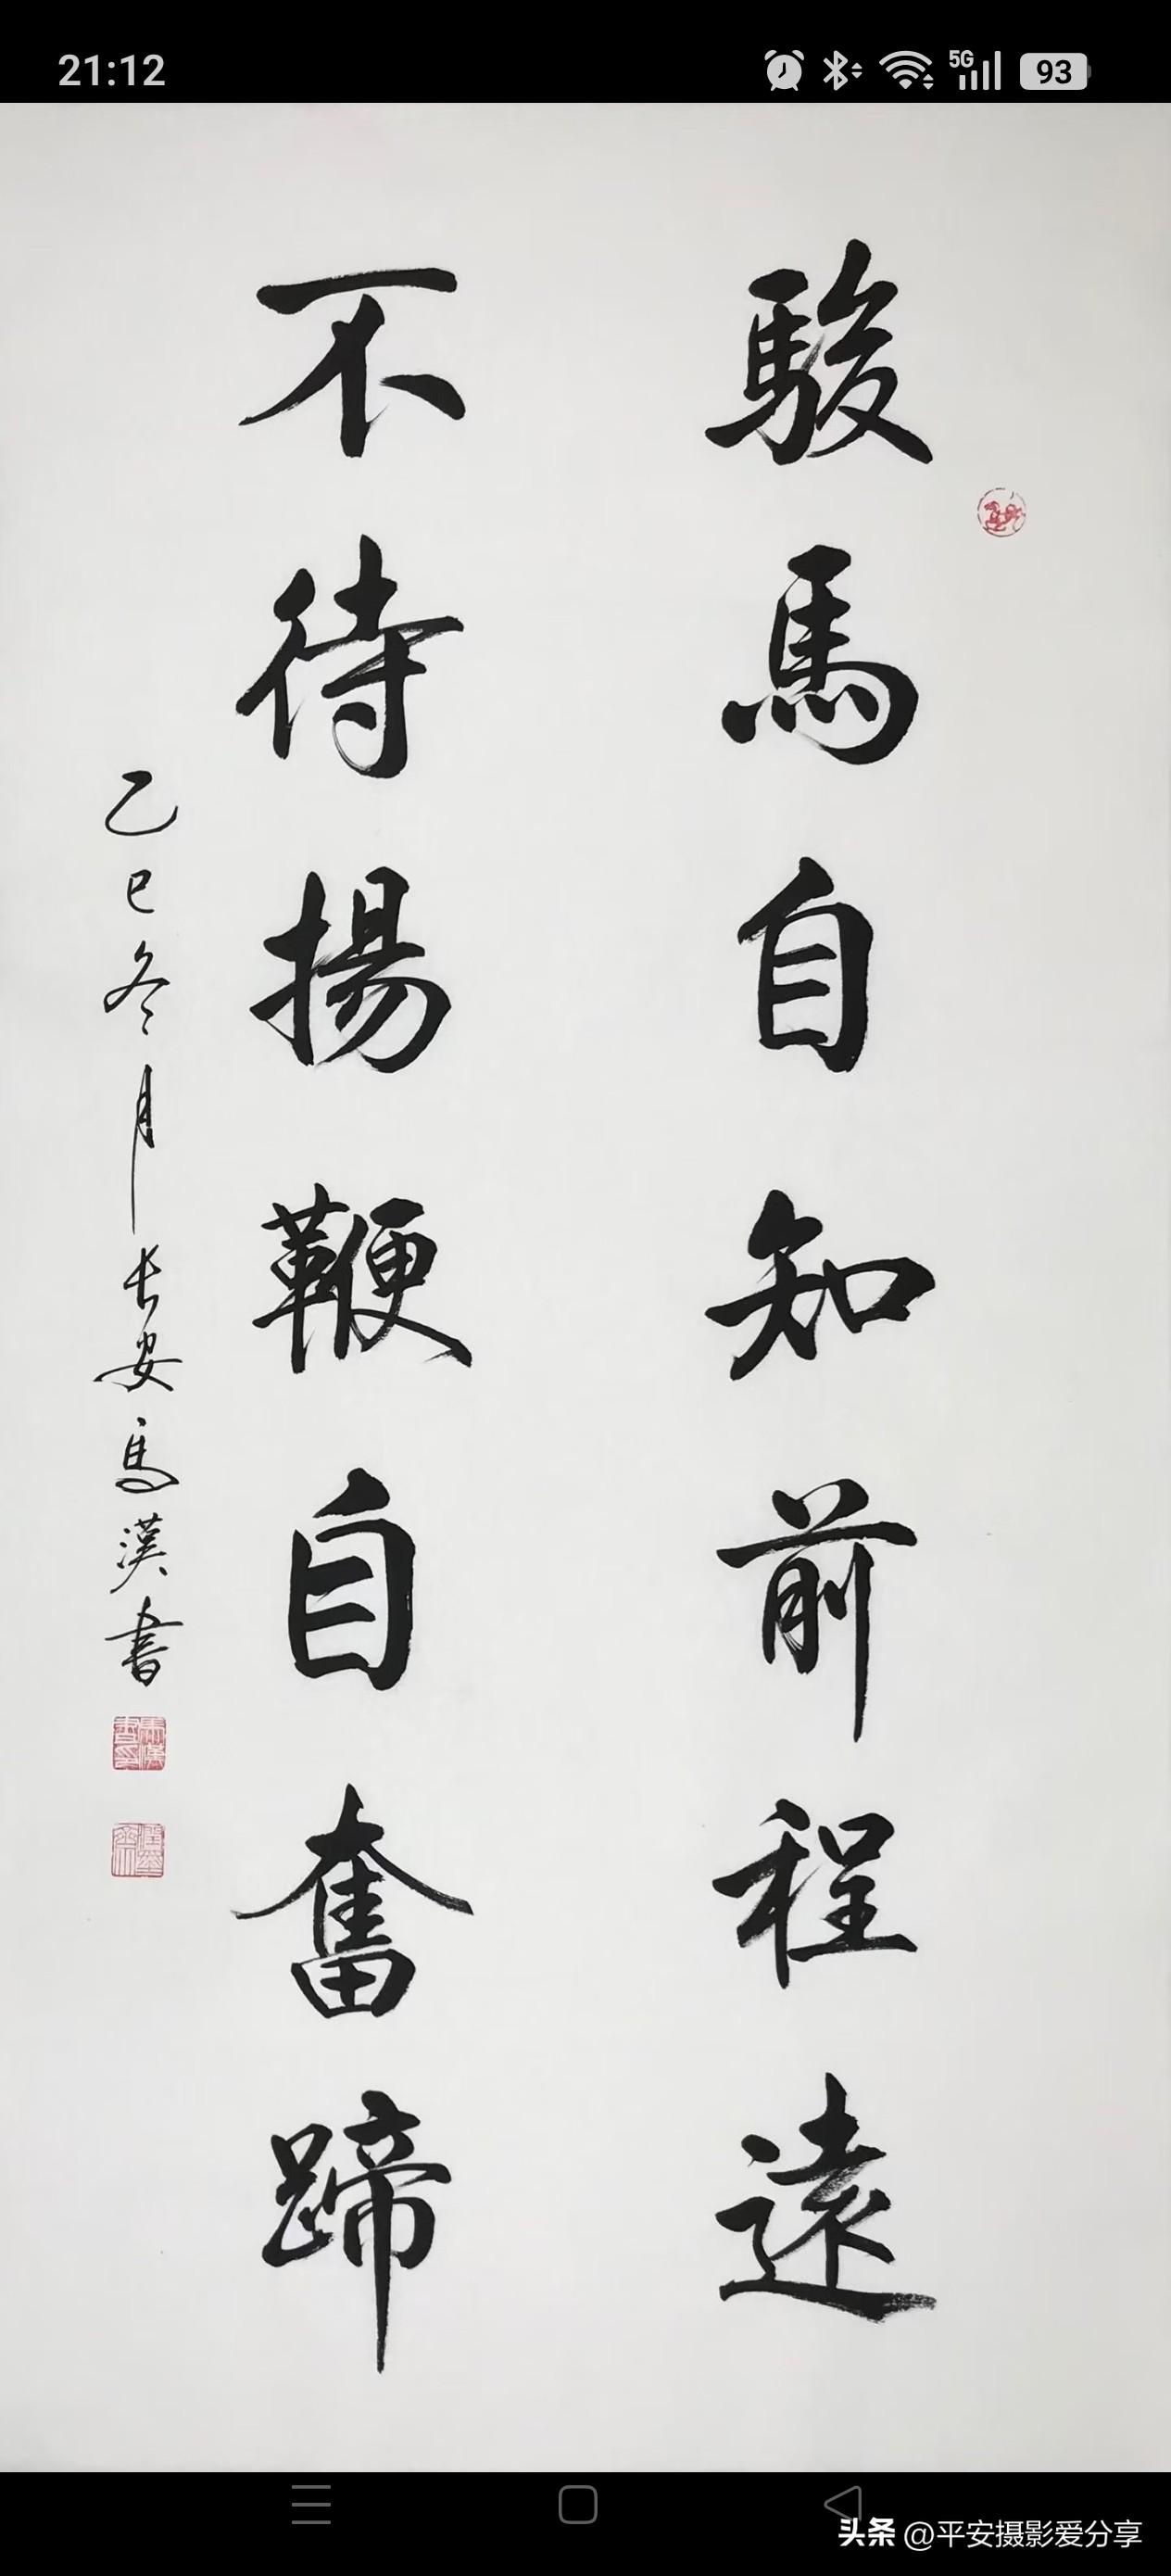 21:12
5G
93
駿馬自知前程遠
不待揚鞭自奮蹄
乙巳冬月長安馬漢書
馬漢書印
头条 @平安摄影爱分享